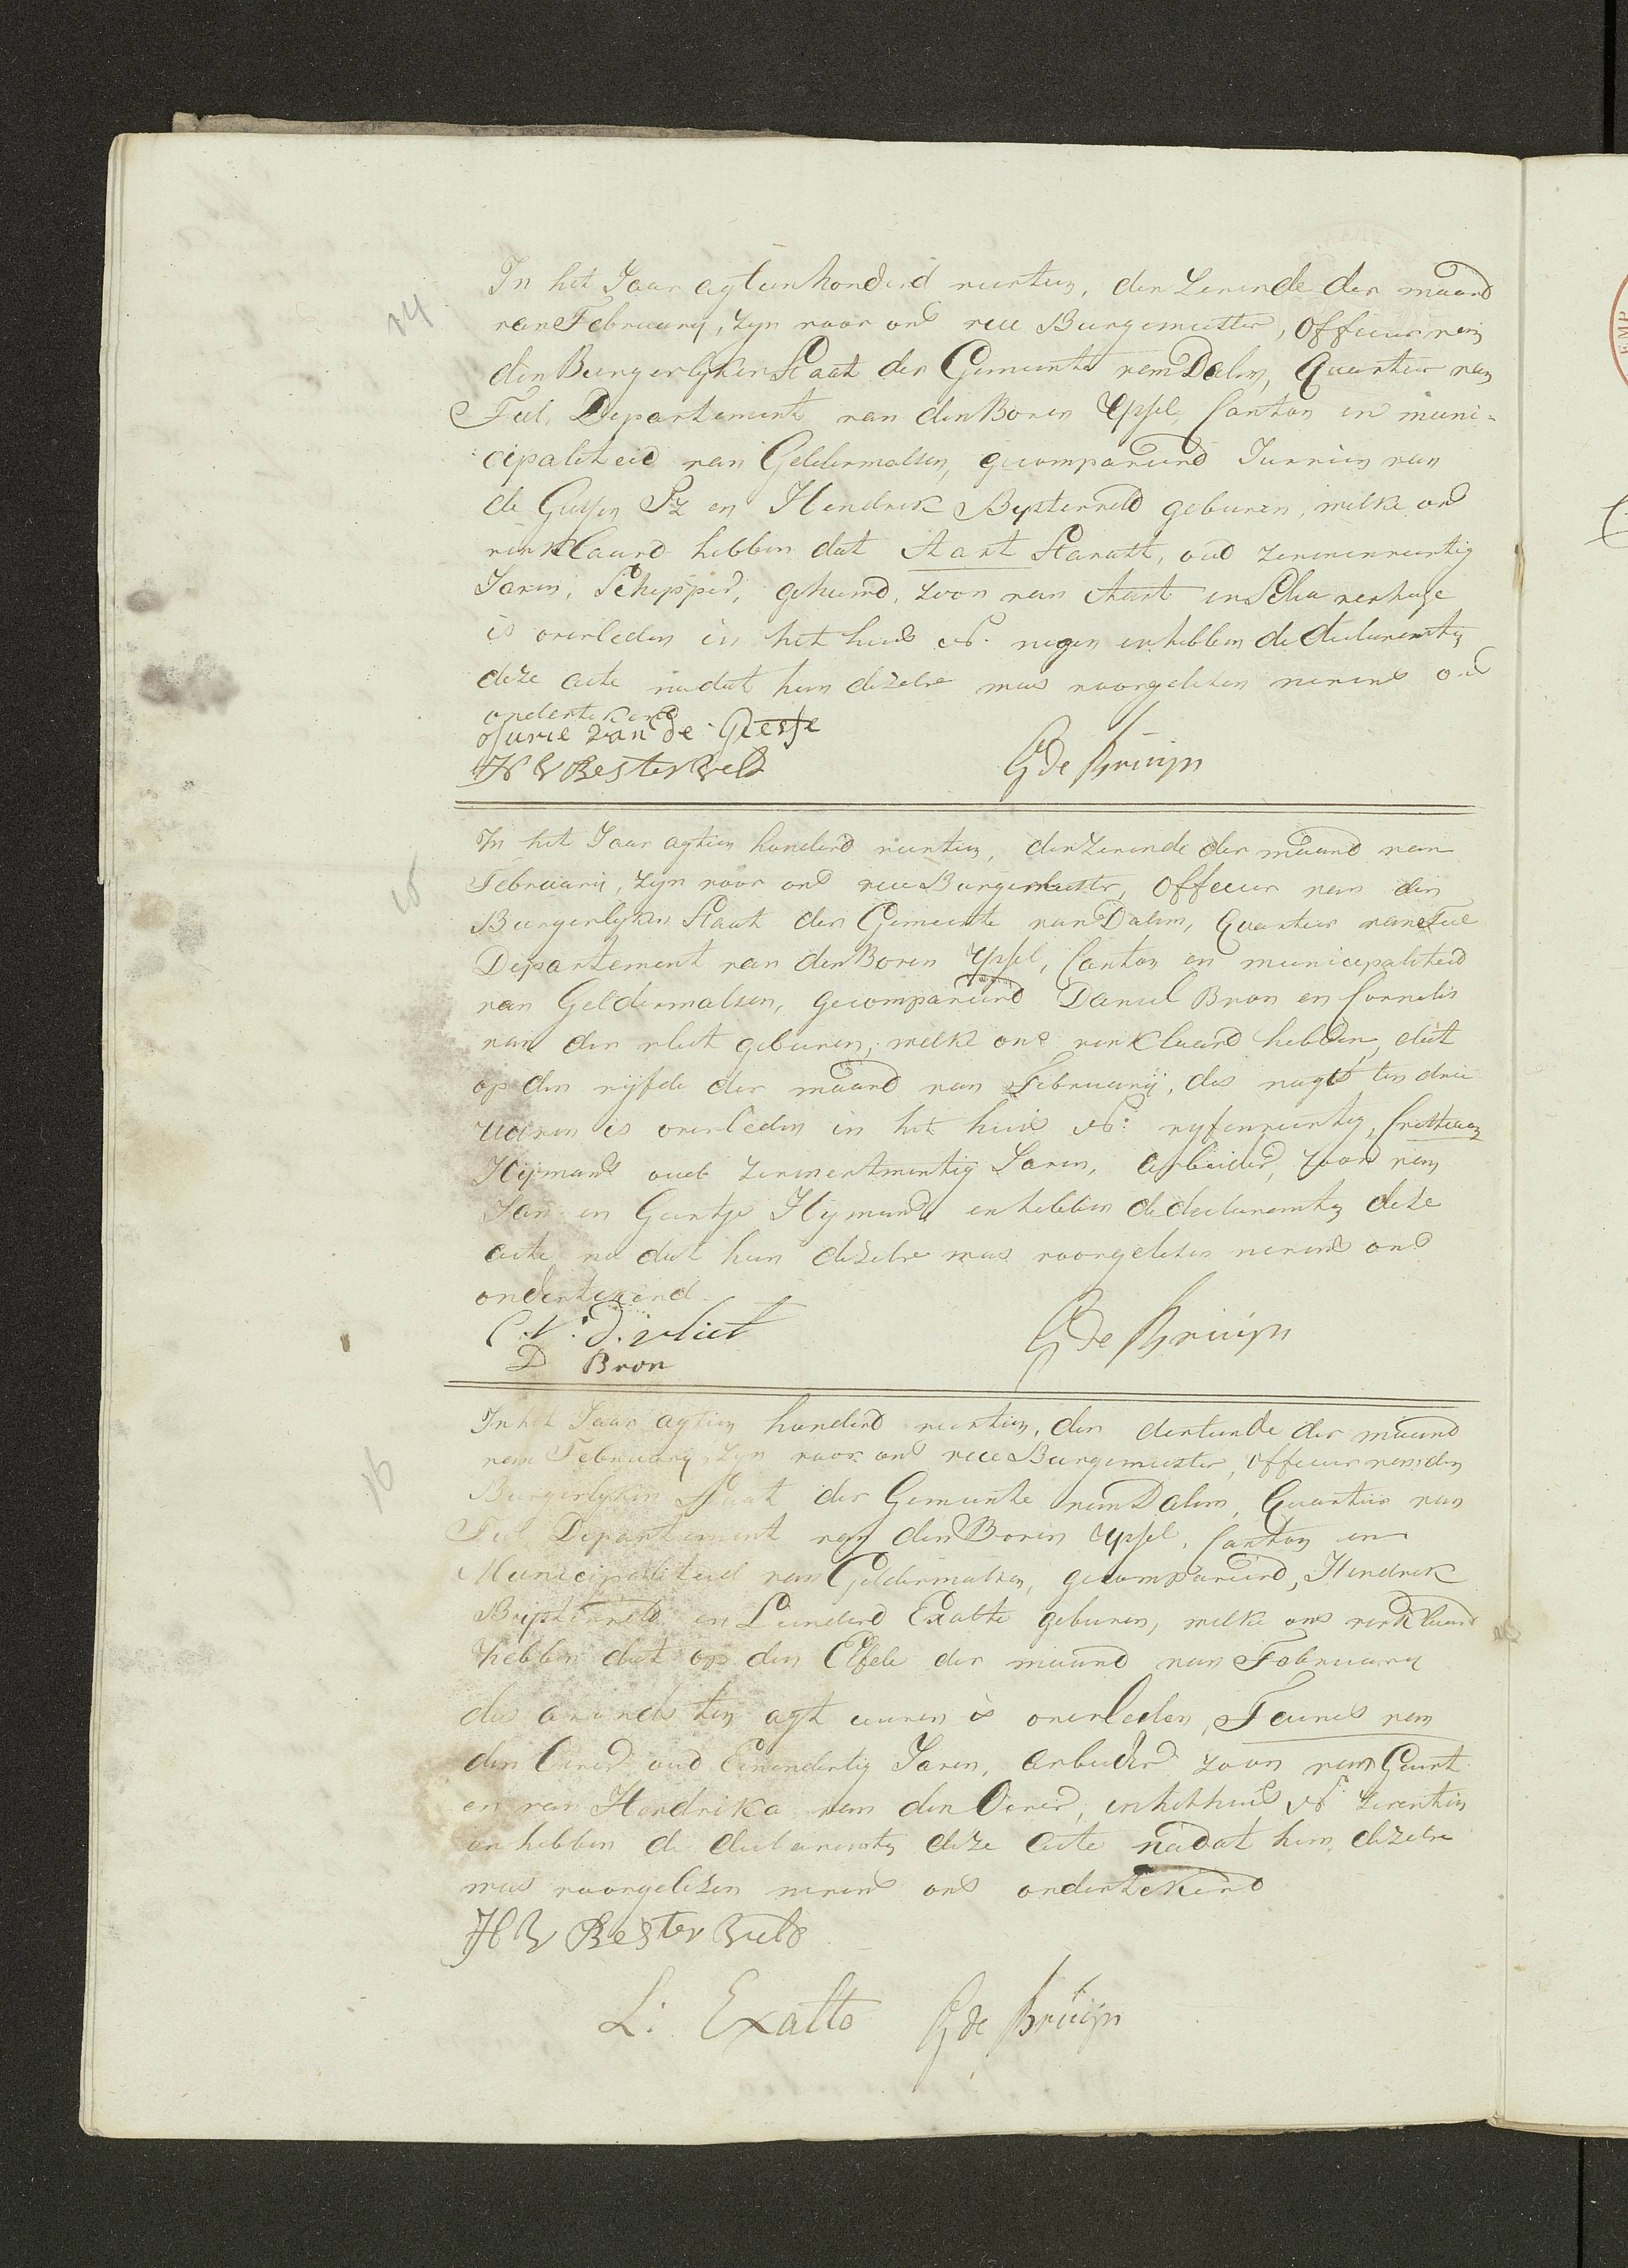 14
In het Jaar agtienhonderd veertien, den Zevende der maand
van February, Zyn voor ons vice Burgemeester, Officier van
den Burgerlyken Staat der Gemeente van Dalem, Quartier van
Tiel, Departement van den Boven Yssel, Canton en muni-
cipaliteid van Geldermalsen, gecompareerd Jurrien van
de en Hendrik Bysterveld geburen, welke ons
verklaard hebben dat Aart, oud Zevenenveertig
Jaren, Schipper, gehuwd, Zoon van Aart en
is overleden in het huis No. negen en hebben de declaranten
deze acte nadat hun dezelve was voorgelezen nevens ons
ondertekend
Jurie van de Geesse
H V BesterVeld
G de Bruijn
15
In het Jaar agtien honderd veertien, den Zevende der maand van
February, Zyn voor ons vice Burgemeester, Officier van den
Burgerlyken Staat der Gemeente van Dalem, Quartier van Tiel
Departement van den Boven Yssel, Canton en municipaliteid
van Geldermalsen, gecompareerd Daniel Bron en Cornelis
van der vliet geburen, welke ons verklaard hebben, dat
op den vyfde der maand van February, des nagts ten drie
uuren is overleden in het huis No: vyfenveertig,
Hijmans oud Zevenentwintig Jaren, arbeider, Zoon van
Jan en Geertje Hymans en hebben de declaranten deze
acte na dat hun dezelve was voorgelezen nevens ons
ondertekend.
C. V. D. vliet
D Bron
G de Bruijn
16
In het Jaar agtien honderd veertien, den dertiende der maand
van February, Zyn voor ons vice Burgemeester, Officier van den
Burgerlyken Staat der Gemeente van Dalem, Quartier van
Tiel Departement van den Boven Yssel, Canton en
Municipaliteid van Geldermalsen, gecompareerd, Hendrik
Bysterveld en Leenderd Exalto geburen, welke ons verklaard
hebben dat op den Elfde der maand van February
des avonds ten agt uuren is overleden, Teunis van
den Oever oud Eenendertig Jaren, arbeider Zoon van Geurt
en van Hendrika van den Oever, in het huis No Zeventien
en hebben de declaranten deze acte nadat hun dezelve
was voorgelezen nevens ons ondertekend
H V BesterVeld
L: Exalto G de Bruijn